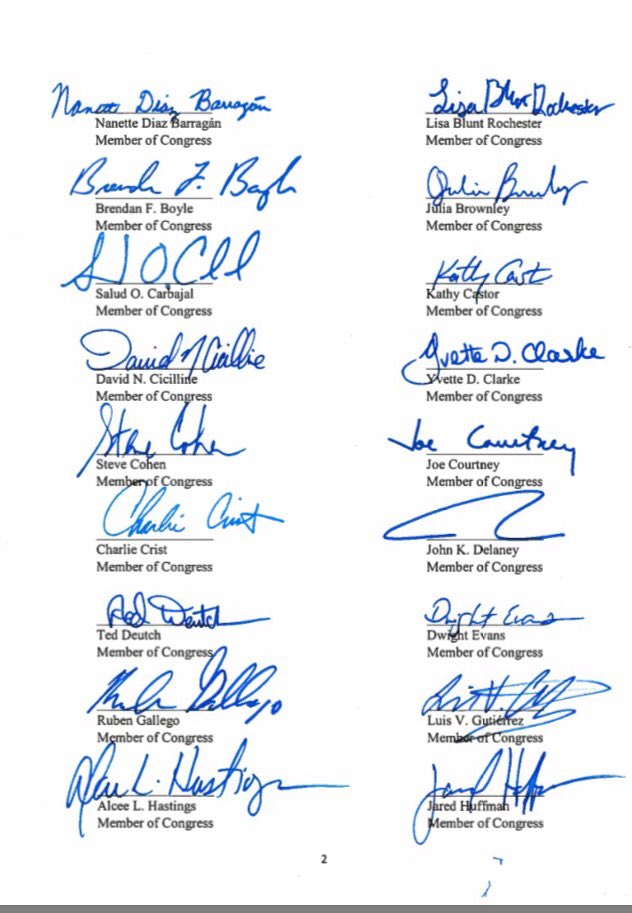 Nanette Diaz Barragán Lisa Blunt Rochester
Nanette Diaz Barragán Lisa Blunt Rochester
Member of Congress Member of Congress
Brendan F. Boyle Julia Brownley
Brendan F. Boyle Julia Brownley
Member of Congress Member of Congress
Salud O. Carbajal Kathy Castor
Member of Congress Member of Congress
David N Cicilline Yvette D. Clarke
David N. Cicilline Yvette D. Clarke
Member of Congress Member of Congress
Steve Cohen Joe Courtney
Steve Cohen Joe Courtney
Member of Congress Member of Congress
Charlie Crist
Charlie Crist John K. Delaney
Member of Congress Member of Congress
Ted Deutch Dwight Evans
Ted Deutch Dwight Evans
Member of Congress Member of Congress
Ruben Gallego Luis V. Gutiérrez
Member of Congress Member of Congress
Alcee L. Hastings Jared Huffman
Alcee L. Hastings Jared Huffman
Member of Congress Member of Congress
2